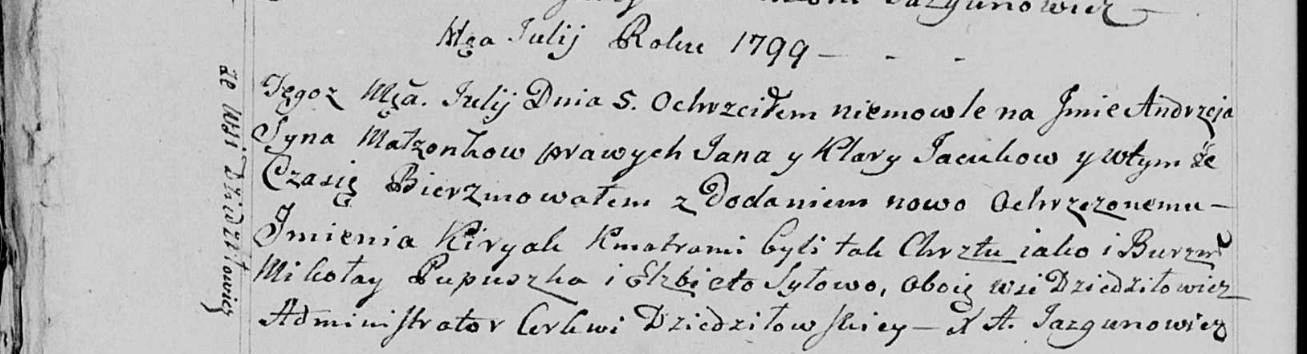 Jazgunowicz
Mça Julij Roku 1799 — - -
ze Wsi Dziedziłowicz
Tęgoż Mça. Julij Dnia 5. Ochrzciłem niemowle na Jmie Andrzeja
Syna Małzonkow prawych Jana y Klary Jacukow y wtym że
Czasię Bierzmowałem z Dodaniem nowo Ochrzczonemu —
Jmienia Kiryak Kmotrami byli tak Chrztu iako i Burzm
Mikołay Pupuszka i Elzbieta Sytowo, oboie wsi Dziedziłowicz
Administrator Cerkwi Dziedziłowskiey — X A. Jazgunowicz